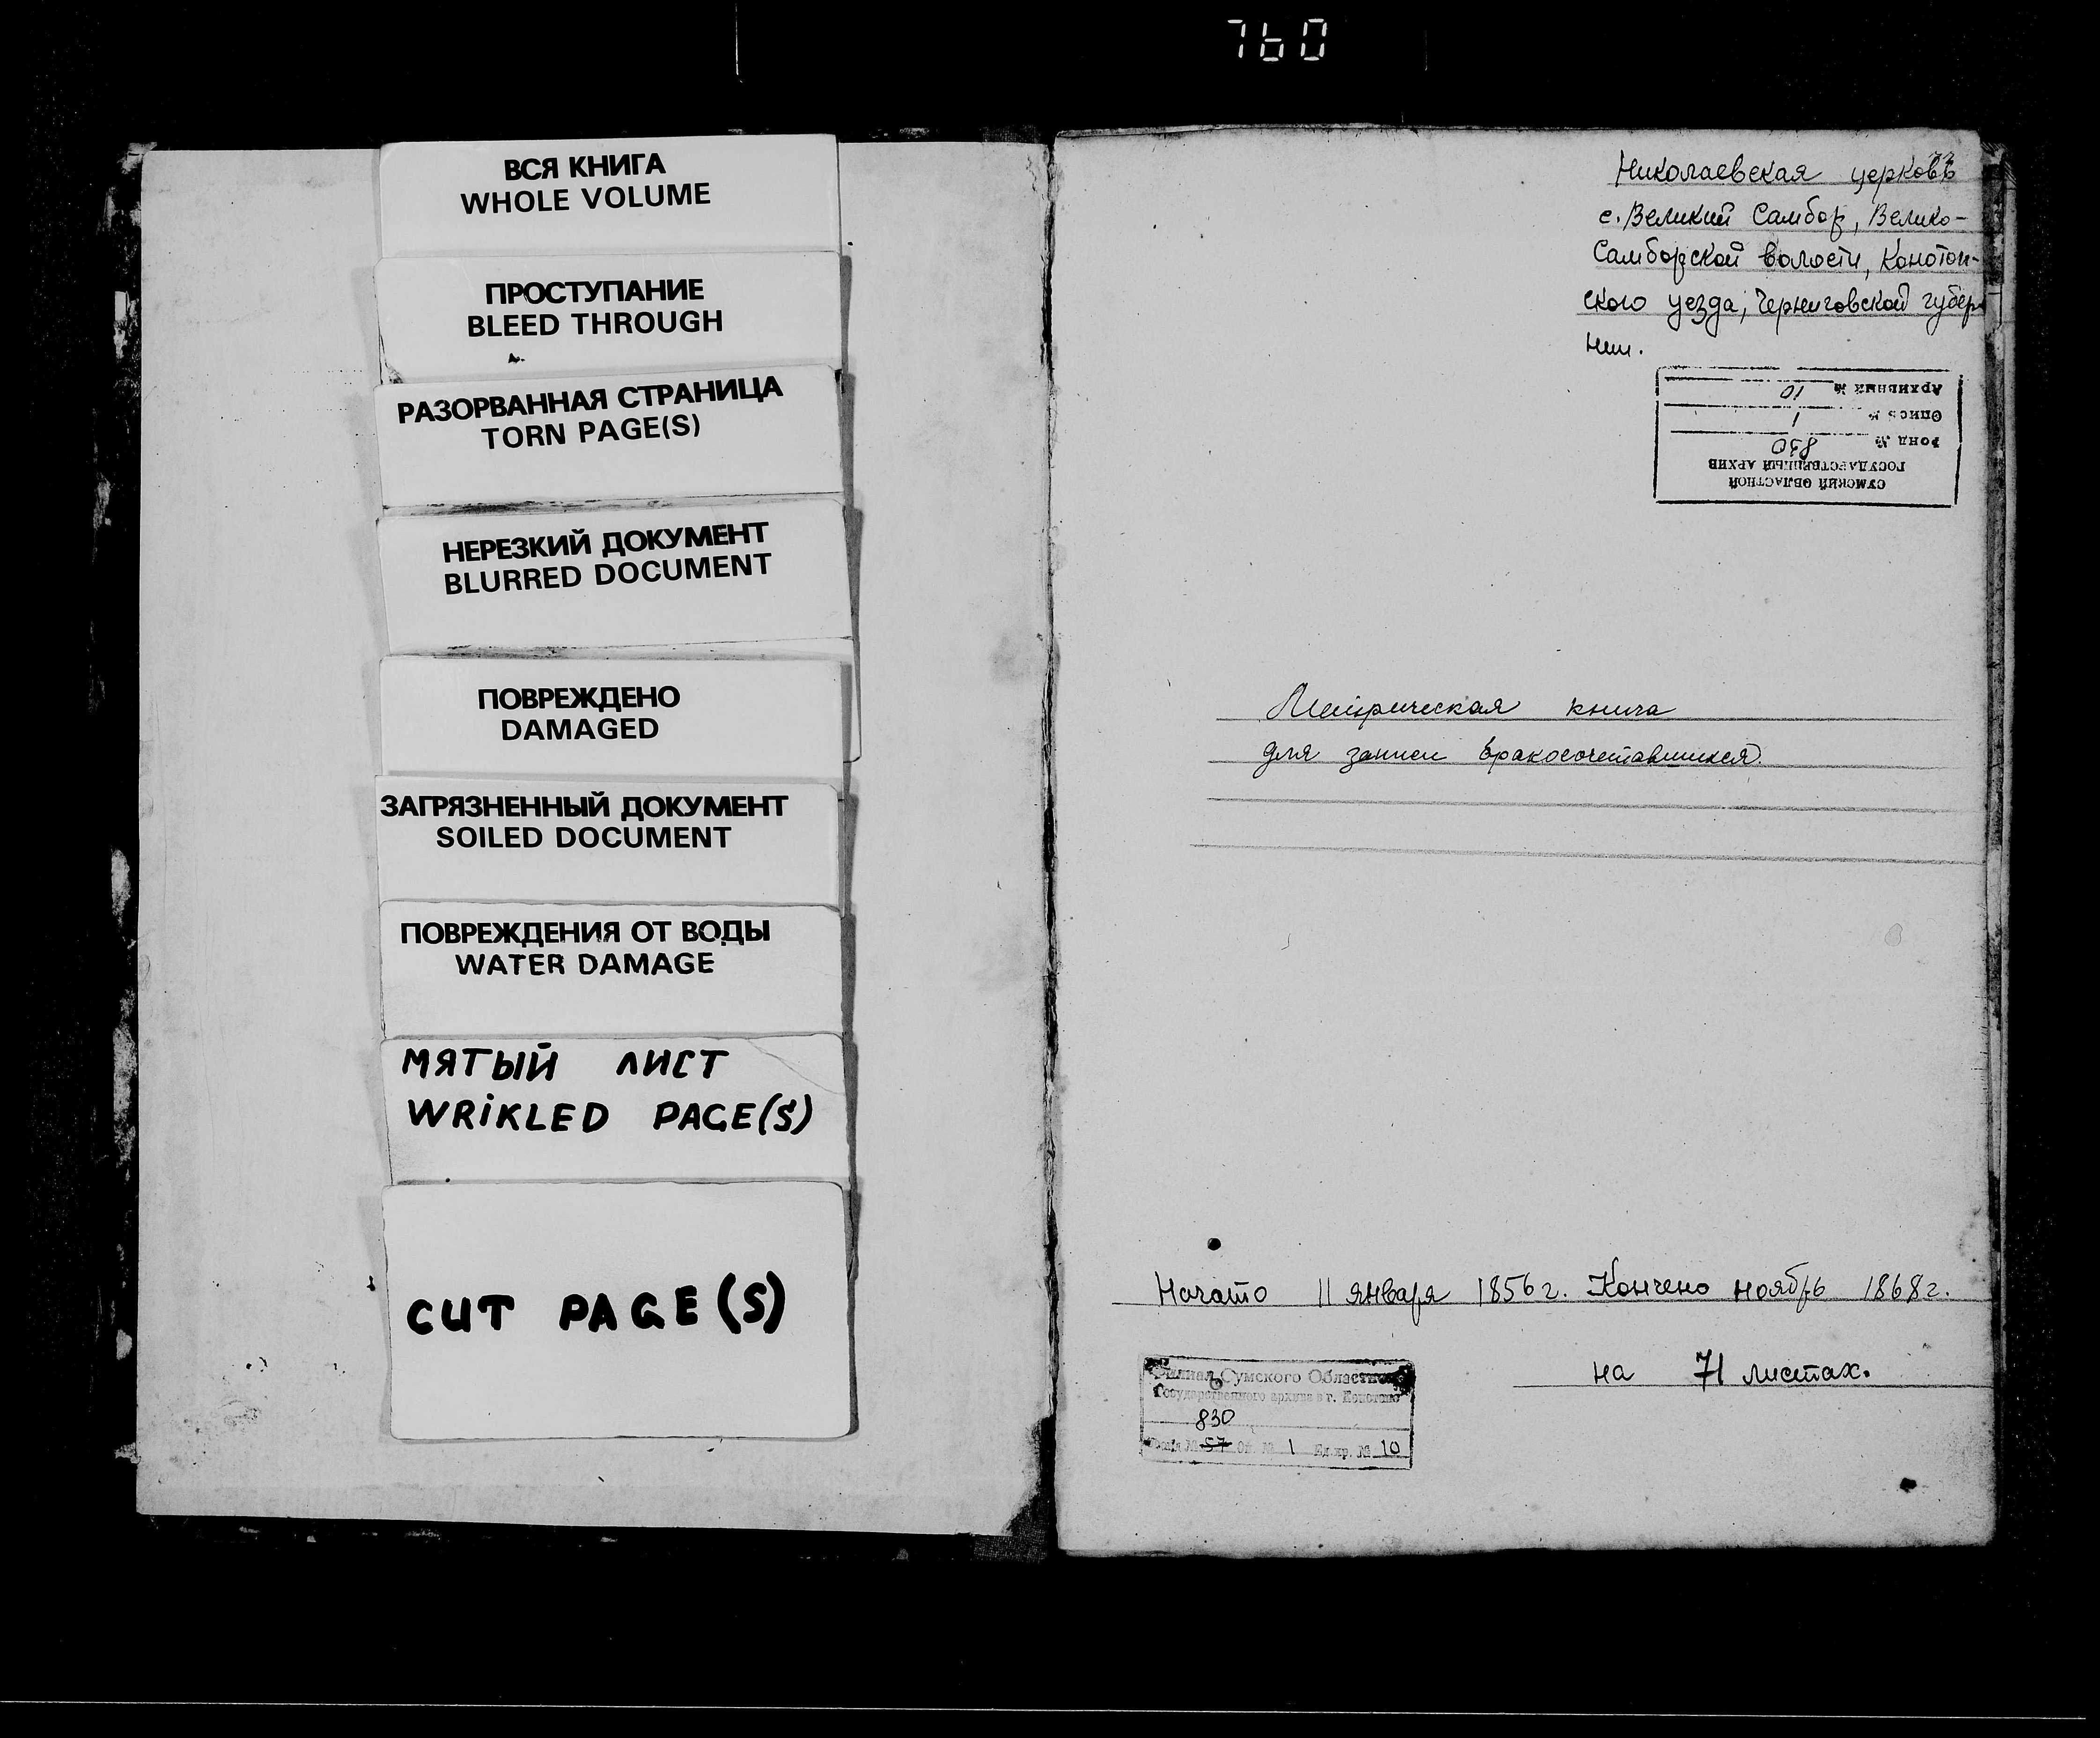 760
ВСЯ КНИГА
WHOLE VOLUME
ПРОСТУПАНИЕ
BLEED THROUGH
РАЗОРВАННАЯ СТРАНИЦА
TORN PAGE(S)
НЕРЕЗКИЙ ДОКУМЕНТ
BLURRED DOCUMENT
ПОВРЕЖДЕНО
DAMAGED
ЗАГРЯЗНЕННЫЙ ДОКУМЕНТ
SOILED DOCUMENT
ПОВРЕЖДЕНИЯ ОТ ВОДЫ
WATER DAMAGE
МЯТЫЙ ЛИСТ
WRIKLED PAGE(S)
CUT PAGE(S)
Николаевская церковь
с. Великий Самбор, Велико-
Самборской волости, Конотоп-
ского уезда, Черниговской губер
нии.
СУМСКИЙ ОБЛАСТНОЙ
ГОСУДАРСТВЕННЫЙ АРХИВ
Фонд № 830
Опись № 1
Архивный № 10
Метрическая книга
для записи бракосочетавшихся
Начато 11 января 1856 г. Кончено ноябрь 1868 г.
на 71 листах.
Филиал Сумского Областного
Государственного архива в г. Конотопе
830
№ 57 Оп. № 1 Ед. хр. № 10